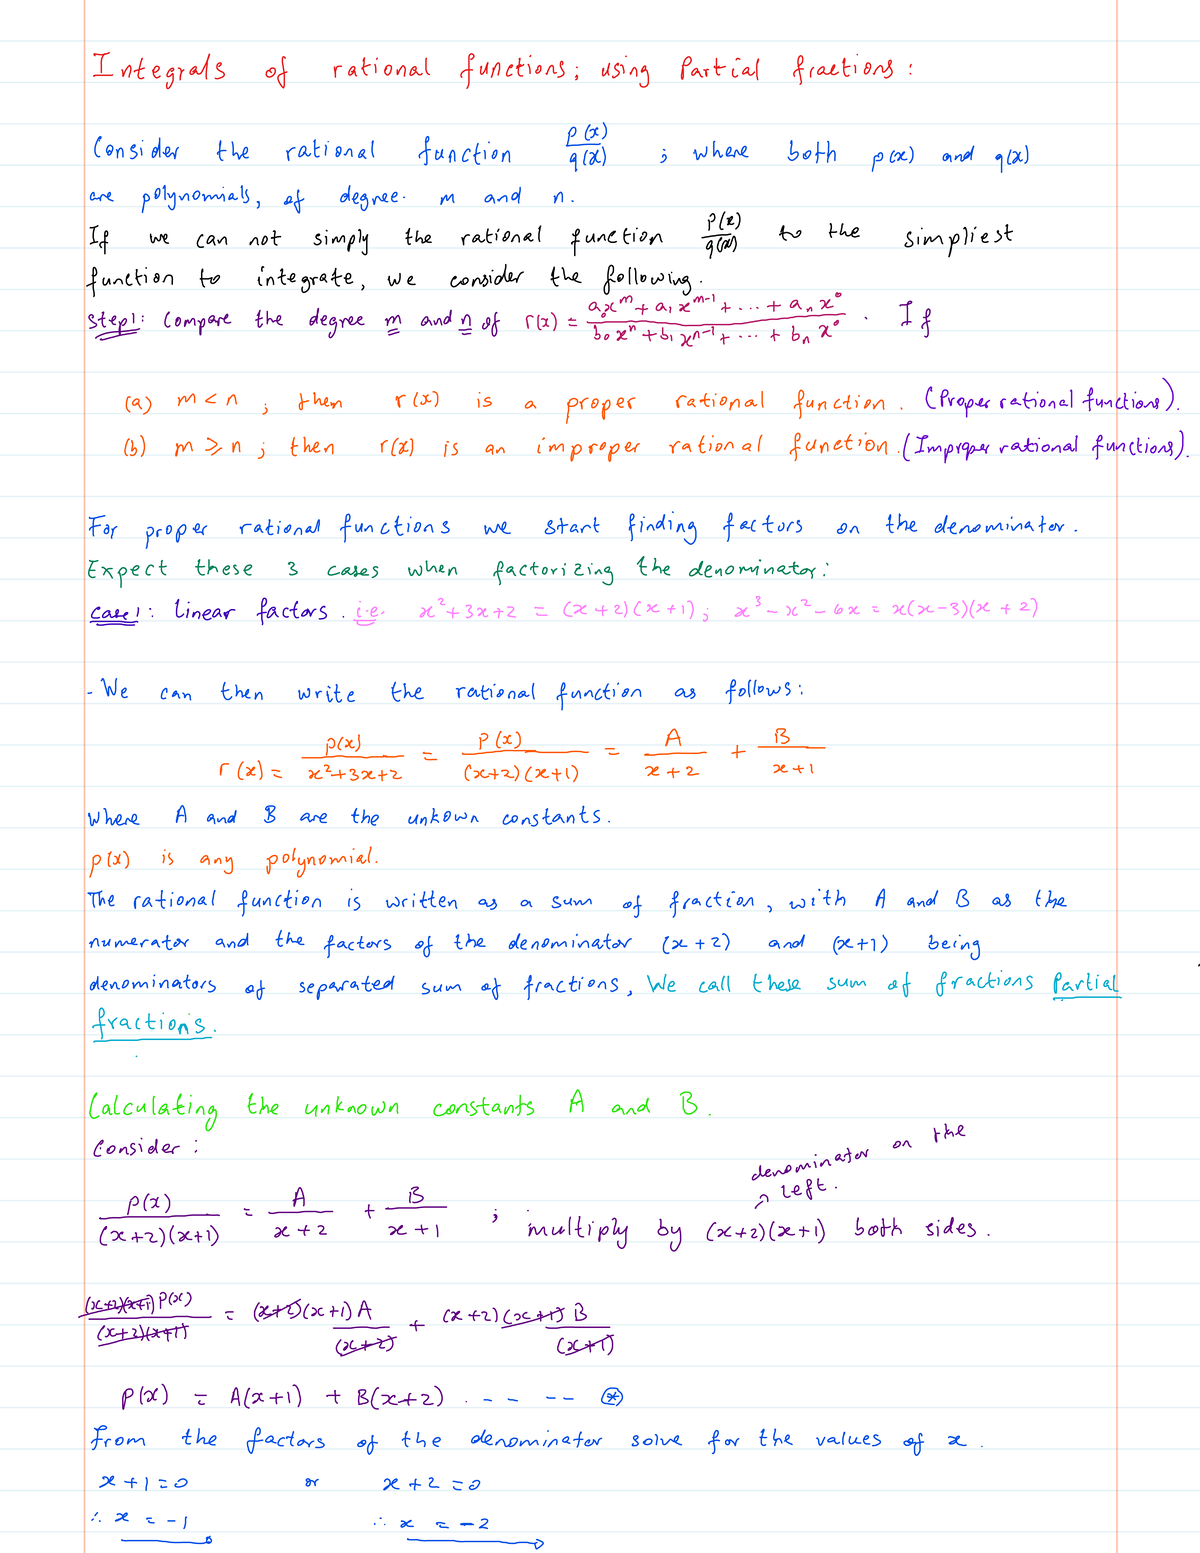 Integrals of rational functions; using Partial fractions:
Consider the rational function p(x)/q(x) ; where both p(x) and q(x)
are polynomials, of degree. m and n.
If we can not simply the rational function p(x)/q(x) to the simpliest
function to integrate, we consider the following.
Step1: Compare the degree m and n of r(x) = (a₀x^m + a₁x^(m-1) + ... + aₙx⁰)/(b₀x^n + b₁x^(n-1) + ... + bₙx⁰) . If
(a) m < n ; then r(x) is a proper rational function. (Proper rational functions).
(b) m ≥ n ; then r(x) is an improper rational function. (Improper rational functions).
For proper rational functions we start finding factors on the denominator.
Expect these 3 cases when factorizing the denominator:
Case1: Linear factors. i.e. x²+3x+2 = (x+2)(x+1); x³-x²-6x = x(x-3)(x+2)
- We can then write the rational function as follows:
r(x) = p(x)/(x²+3x+2) = P(x)/((x+2)(x+1)) = A/(x+2) + B/(x+1)
where A and B are the unkown constants.
p(x) is any polynomial.
The rational function is written as a sum of fraction, with A and B as the
numerator and the factors of the denominator (x+2) and (x+1) being
denominators of separated sum of fractions, We call these sum of fractions Partial
fractions.
Calculating the unknown constants A and B.
Consider:
denominator on the
left.
P(x)/((x+2)(x+1)) = A/(x+2) + B/(x+1) ; multiply by (x+2)(x+1) both sides.
(x+2)(x+1)P(x)/((x+2)(x+1)) = (x+2)(x+1)A/(x+2) + (x+2)(x+1)B/(x+1)
P(x) = A(x+1) + B(x+2) . - - - - (*)
From the factors of the denominator solve for the values of x.
x+1=0 or x+2=0
∴ x = -1 ∴ x = -2